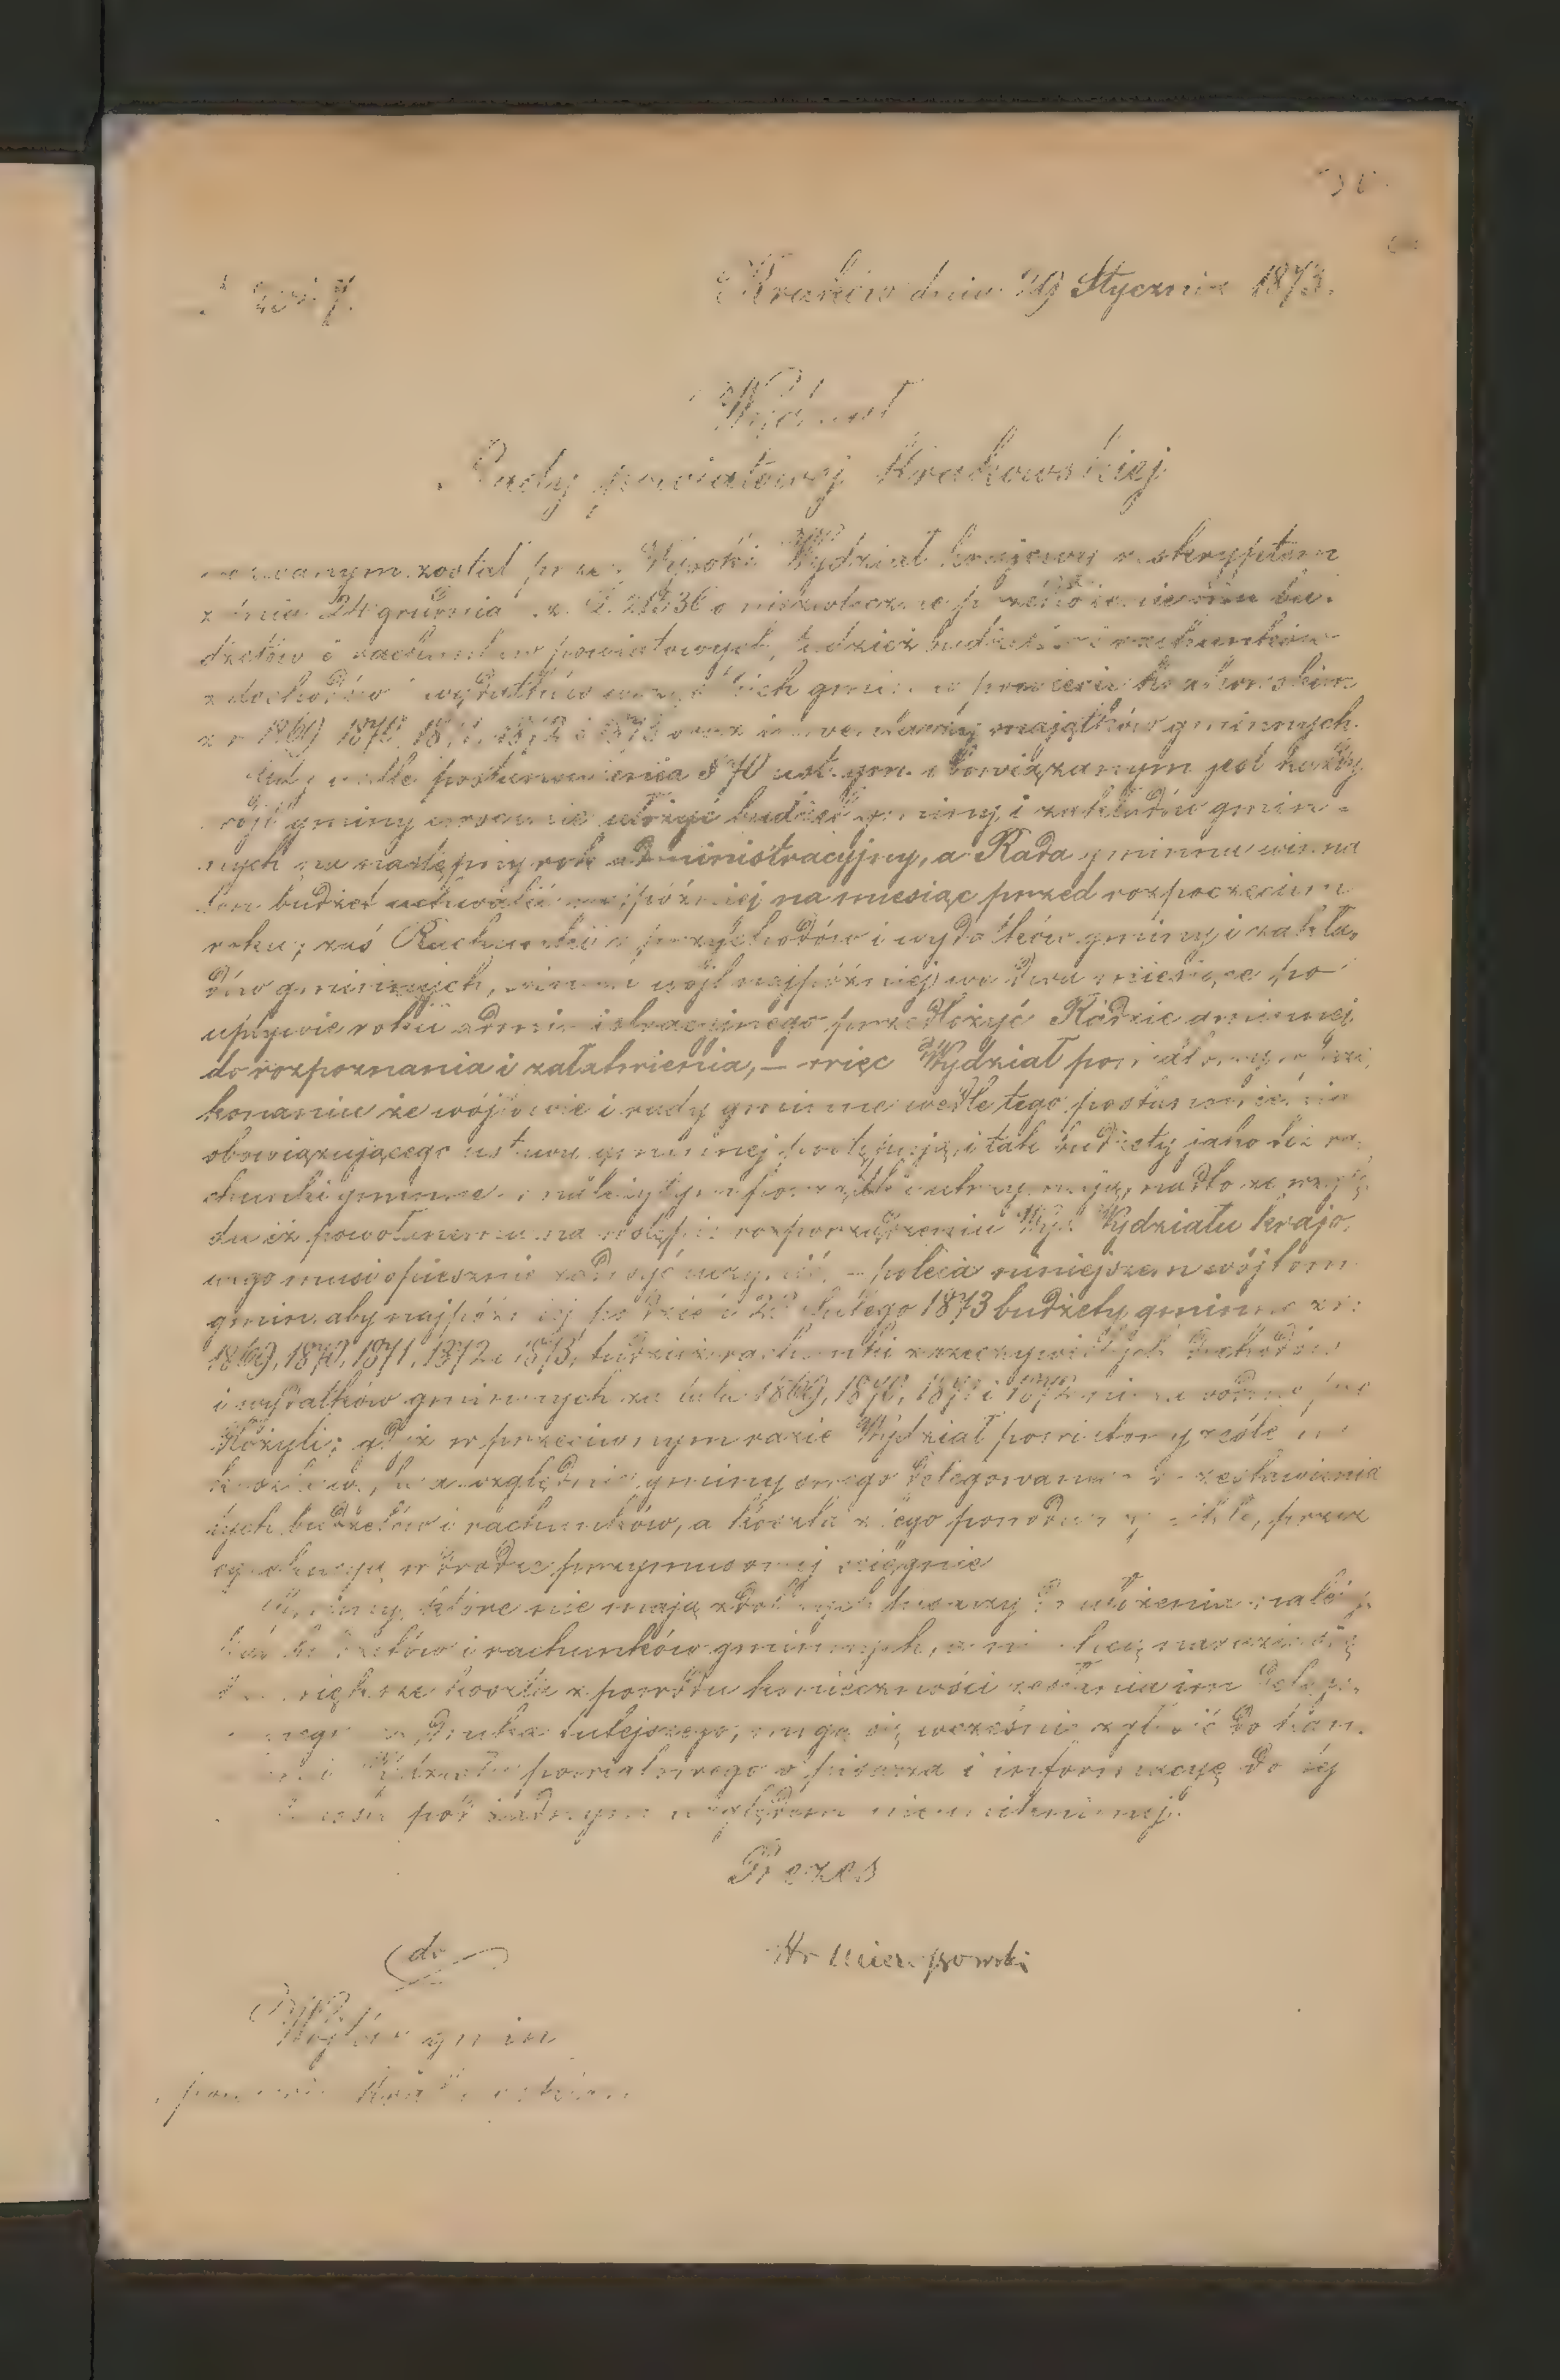 Kraków dnia 29 Stycznia 1873.
Wydział
Rady powiatowej Krakowskiej
wezwanym został przez Wysoki Wydział krajowy reskryptem
z dnia 24 grudnia L. 21536 o niezwłoczne przedłożenie bu-
dżetów i rachunków powiatowych, tudzież budżetów i rachunków
z dochodów i wydatków wszystkich gmin w powiecie krakowskim
z r. 1869 1870, 1871, 1872 i 1873 oraz inwentarzy majątków gminnych.
Gdy wedle postanowienia § 70 ust. gm. obowiązanym jest każdy
wójt gminy corocznie ułożyć budżet gminy i zakładów gmin-
nych na następny rok administracyjny, a Rada gminna winna
ten budżet uchwalić najpóźniej na miesiąc przed rozpoczęciem
roku; zaś Rachunki z przychodów i wydatków gminy i zakła-
dów gminnych, winien wójt najpóźniej we dwa miesiące po
upływie roku administracyjnego przedłożyć Radzie gminnej
do rozpoznania i załatwienia, — więc Wydział powiatowy w prze-
konaniu że wójtowie i rady gminne wedle tego postanowienia
obowiązującego ustawy gminnej postępują i tak budżety jako też ra-
chunki gminne w należytym porządku utrzymują, nadto ze wzglę-
du iż powołanemu na wstępie rozporządzeniu Wys. Wydziału krajo-
wego musi spiesznie zadosyć uczynić, — poleca niniejszem wójtom
gmin, aby najpóźniej po dzień lutego 1873 budżety gminne z r.
1869, 1870, 1871, 1872 i 1873, tudzież rachunki z rzeczywistych dochodów
i wydatków gminnych za lata 1869, 1870, 1871 i 1872 niezawodnie prze-
dłożyli; gdyż w przeciwnym razie Wydział powiatowy ześle na
koszt względnie gminy swego delegowanego do zestawienia
tych budżetów i rachunków, a koszta z tego powodu wynikłe, przez
egzekucyę w drodze przymusowej ściągnie
Gminy, które nie mają zdolnych pisarzy do ułożenia należy-
budżetów i rachunków gminnych, a nie chcą narazić się
większe koszta z powodu konieczności zesłania im delego-
wanego tutejszego, mogą się wcześnie zgłosić do kan-
Wydziału powiatowego o pisarza i informacyę do tej
pod żadnym względem nieuniknionej.
Prezes
do
Wójtów gmin